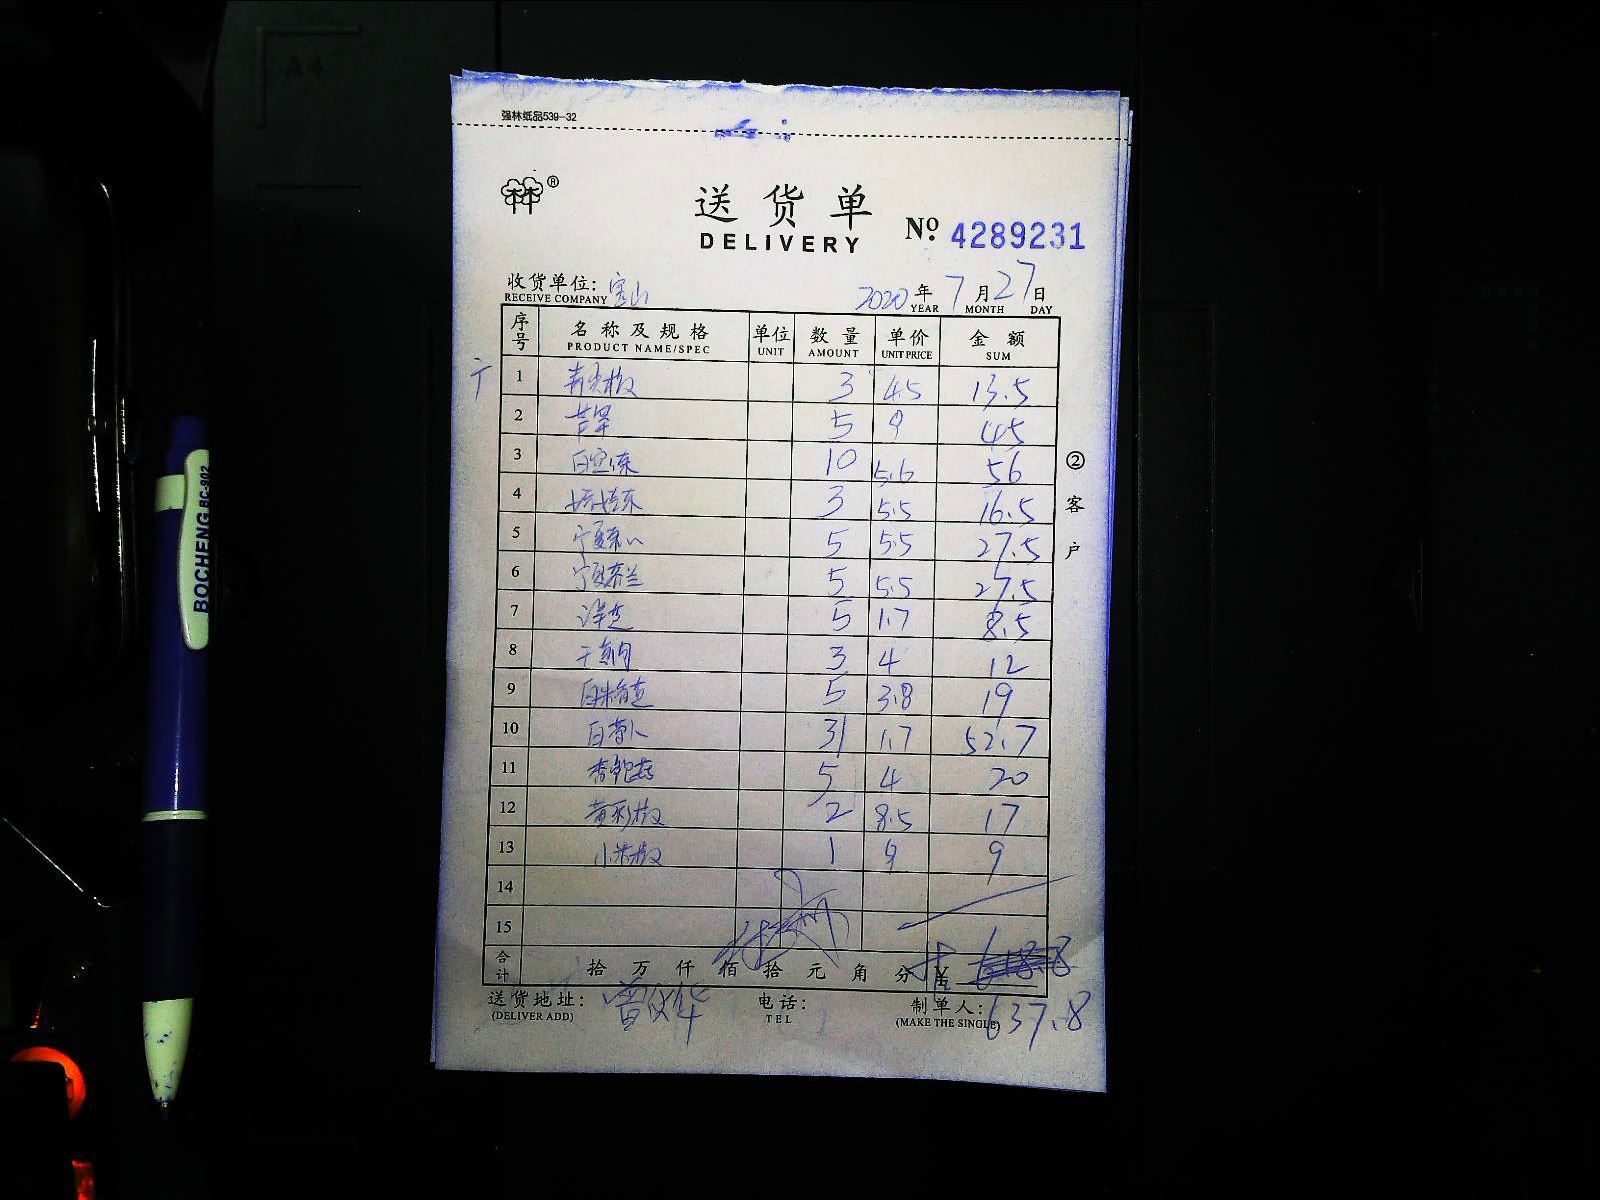 强林纸品539-32
林®
送货单
DELIVERY
№ 4289231
收货单位: 宝山 2020年7月27日
RECEIVE COMPANY YEAR MONTH DAY
序号 名称及规格 单位 数量 单价 金额
PRODUCT NAME/SPEC UNIT AMOUNT UNIT PRICE SUM
1 青尖椒 3 4.5 13.5
2 5 9 45
3 10 5.6 56
4 3 5.5 16.5
5 宁夏菜心 5 5.5 27.5
6 宁夏芥兰 5 5.5 27.5
7 洋芝 5 1.7 8.5
8 3 4 12
9 5 3.8 19
10 白萝卜 31 1.7 52.7
11 杏鲍菇 5 4 20
12 黄彩椒 2 8.5 17
13 小米椒 1 9 9
14
15
合计 拾万仟佰拾元角分 ¥
②客户
送货地址: 电话: 制单人: 637.8
(DELIVER ADD) TEL (MAKE THE SINGLE)
BOCHENG BC-902
A4